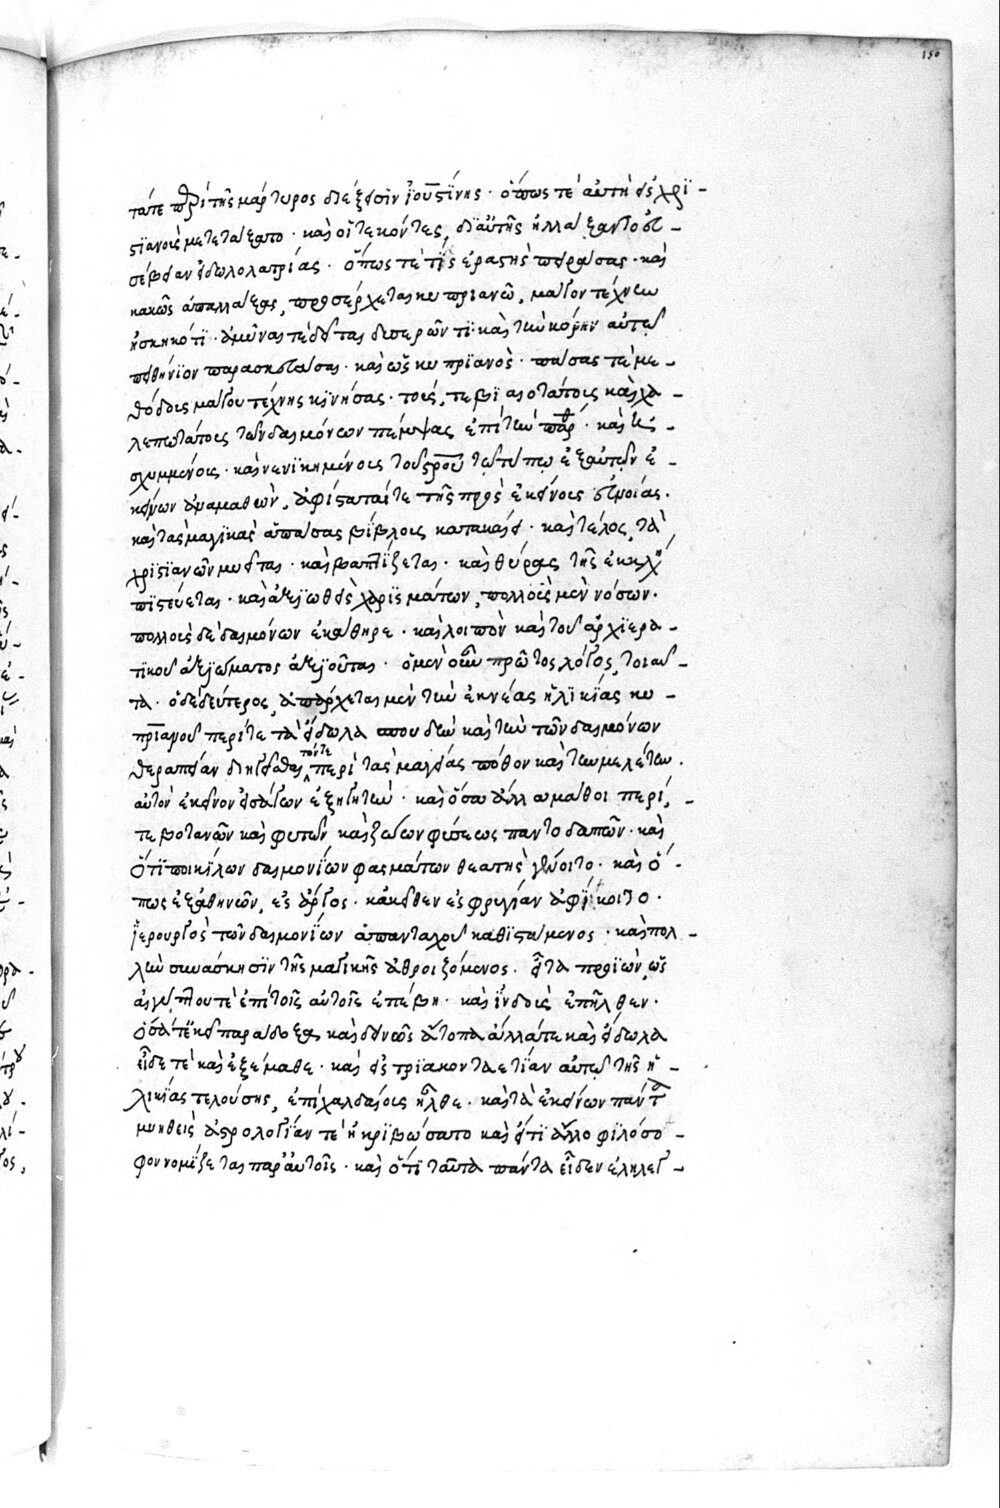 150
τά τε περὶ τῆς μάρτυρος διέξεισιν ἰουστίνης· ὅπως τὲ αὐτὴ εἰς χρι-
στιανοὺς μετετάξατο· καὶ οἱ τεκόντες, δι' αὐτῆς ἠλλάξαντο εὐ-
σέβειαν εἰδωλολατρίας. ὅπως τὲ τὶς ἐραστὴς πειράσας· καὶ
κακῶς ἀπαλλάξας, προσέρχεται κυπριανῶ, μάγον τέχνην
ἠσκηκότι· ἀμῦναι τὲ δεῖται δυσερῶντι· καὶ τὴν κόρην αὐτῶ
πειθήνιον παρασκευάσαι· καὶ ὡς κυπριανὸς· πάσας τὲ με-
θόδους μάγου τέχνης κινήσας· τούς, τε βιαιοτάτους καὶ χα-
λεπωτάτους τῶν δαιμόνων πέμψας ἐπὶ τὴν παρθ· καὶ
σχυμμένους· καὶ νενικημένους τοῦ στροῦ τῶ τύπω ἐξ αὐτῶν ἐ-
κείνων ἀναμαθών, ἀφίσταταί τε τῆς πρὸς ἐκείνους εὐνοίας.
καὶ τὰς μαγικὰς ἁπάσας βίβλους κατακαίει· καὶ τέλος, τὰ
χριστιανῶν μυεῖται· καὶ βαπτίζεται· καὶ θύρας τῆς ἐκκλη
πιστεύεται· καὶ ἀξιωθεὶς χαρισμάτων, πολλοὺς μὲν νόσων·
πολλοὺς δὲ δαιμόνων ἐκάθηρε· καὶ λοιπὸν καὶ τοῦ ἀρχιερα-
τικοῦ ἀξιώματος ἀξιοῦται· ὁ μὲν οὖν πρῶτος λόγος, τοιαῦ-
τα· ὁ δὲ δεύτερος, ἀπάρχεται μὲν τὴν ἐκ νέας ἡλικίας κυ-
πριανοῦ περί τε τὰ εἴδωλα σπουδὴν καὶ τὴν τῶν δαιμόνων
θεραπείαν διηγεῖσθαι, τόν τε περὶ τὰς μαγείας πόθον καὶ τὴν μελέτην.
αὐτὸν ἐκεῖνον εἰσάγων ἐξηγητὴν· καὶ ὅσα ἄλλα μάθοι περί,
τε βοτανῶν καὶ φυτῶν καὶ ζώων φύσεως παντοδαπῶν· καὶ
ὅτι ποικίλων δαιμονίων φασμάτων θεατὴς γένοιτο· καὶ ὅ-
πως ἐξ ἀθηνῶν, εἰς ἄργος· κἀκεῖθεν εἰς φρυγίαν ἀφίκοιτο·
ἱερουργὸς τῶν δαιμονίων ἁπανταχοῦ καθιστάμενος· καὶ πολ-
λὴν συνάσκησιν τῆς μαγικῆς ἀθροιζόμενος. εἶτα προϊὼν, ὡς
αἰγύπτου τὲ ἐπὶ τοῖς αὐτοῖς ἐπέβη· καὶ ἰνδοὺς ἐπῆλθεν·
ὅσα τὲ κεῖ παράδοξα καὶ δεινῶς ἄτοπα ἄλλά τε καὶ εἴδωλα
εἶδε τὲ καὶ ἐξέμαθε· καὶ εἰς τριακονταετίαν αὐτῶ τῆς ἡ-
λικίας τελούσης, ἐπὶ χαλδαίους ἦλθε· καὶ τὰ ἐκείνων παντ
μυηθεὶς ἀστρολογίαν τὲ ἠκριβώσατο καὶ εἴ τι ἄλλο φιλόσο-
φον νομίζεται παρ' αὐτοῖς· καὶ ὅτι ταῦτα πάντα εἶδεν ἐληλεγ-